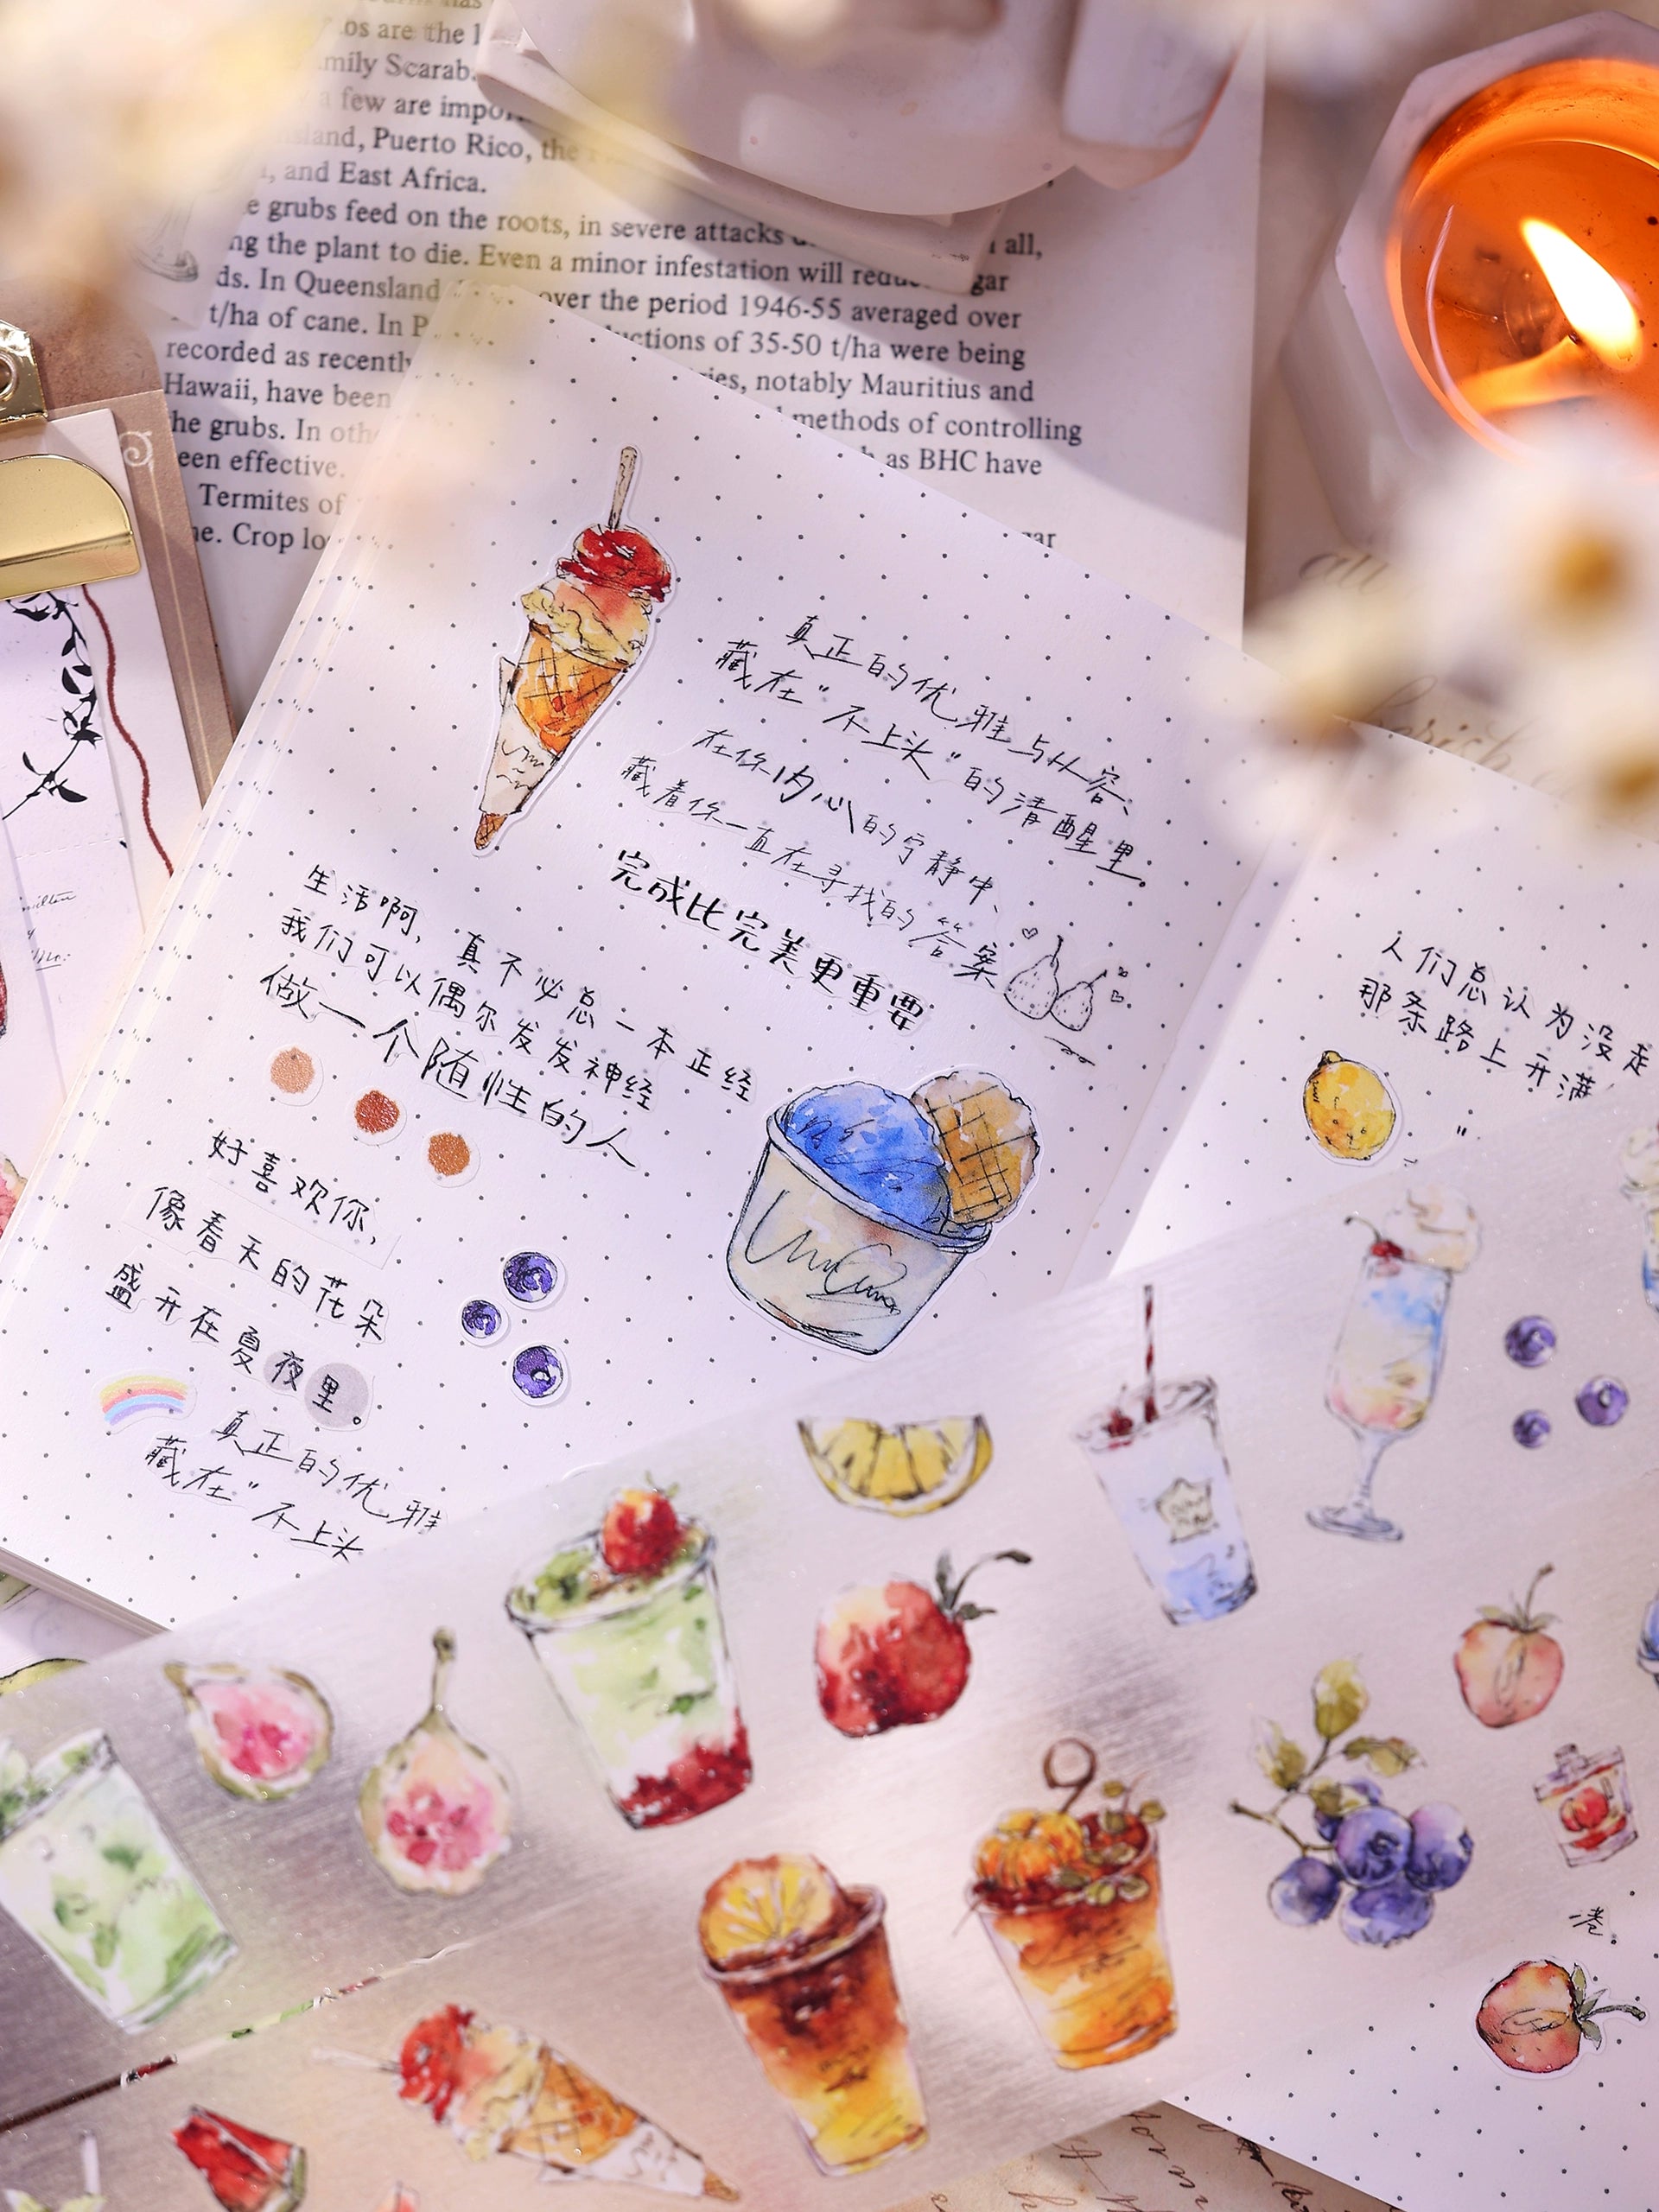 os are the
mily Scarab.
a few are
land, Puerto Rico, the
and East Africa.
grubs feed on the roots, in severe attacks all,
ng the plant to die. Even a minor infestation will gar
ds. In Queensland over the period 1946-55 averaged over
t/ha of cane. In ctions of 35-50 t/ha were being
recorded as recently ries, notably Mauritius and
Hawaii, have been methods of controlling
he grubs. In as BHC have
een effective.
Termites of
ne. Crop ar
真正的优雅与从容、
藏在“不上头”的清醒里。
在你内心的宁静中、
藏着你一直在寻找的“答案
完成比完美更重要
生活啊，真不必总一本正经
我们可以偶尔发发神经
做一个随性的人
好喜欢你，
像春天的花朵
盛开在夏夜里。
真正的优雅
藏在“不上头
人们总认为没走
那条路上开满